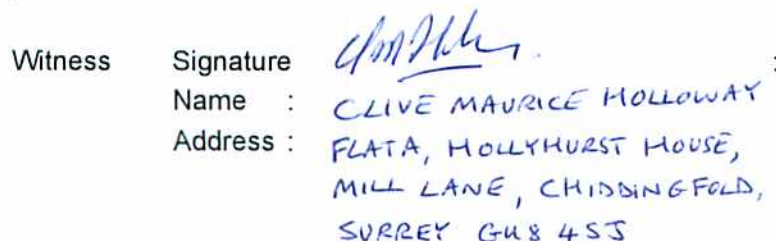 Witness Signature :
Name : CLIVE MAURICE HOLLOWAY
Address : FLAT A, HOLLYHURST HOUSE,
MILL LANE, CHIDDINGFOLD,
SURREY GU8 4SJ